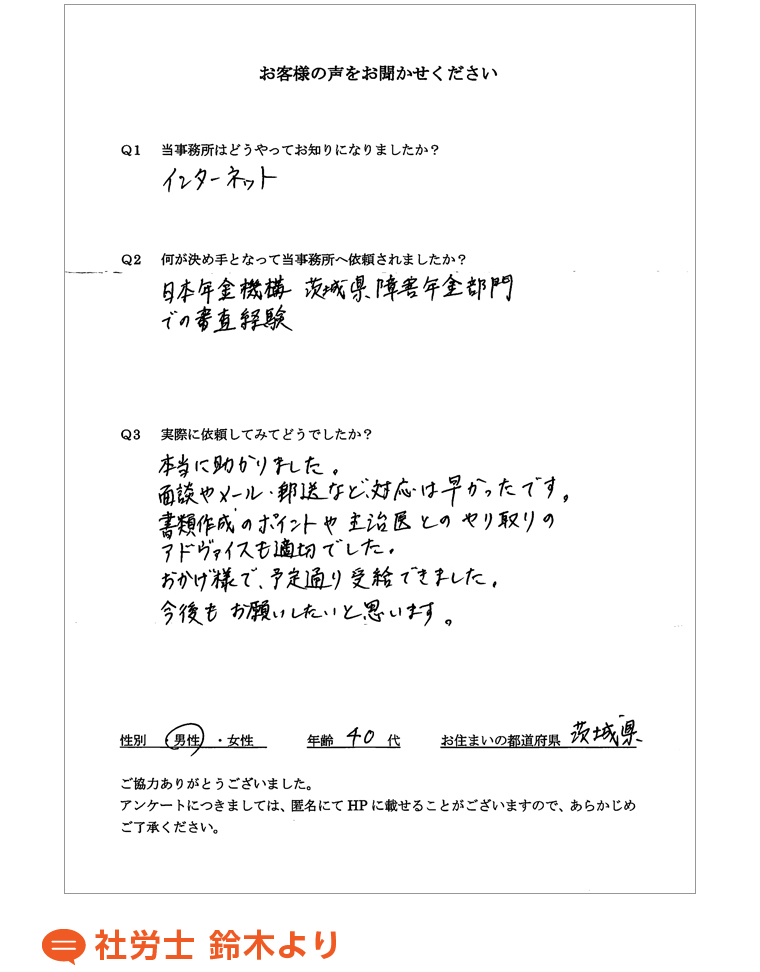 お客様の声をお聞かせください
Q1 当事務所はどうやってお知りになりましたか？
インターネット
Q2 何が決め手となって当事務所へ依頼されましたか？
日本年金機構 茨城県障害年金部門
での審査経験
Q3 実際に依頼してみてどうでしたか？
本当に助かりました。
面談やメール・郵送など、対応は早かったです。
書類作成のポイントや主治医とのやり取りの
アドヴァイスも適切でした。
おかげ様で、予定通り受給できました。
今後もお願いしたいと思います。
性別 男性 ・女性 年齢 40 代 お住まいの都道府県 茨城県
ご協力ありがとうございました。
アンケートにつきましては、匿名にて HP に載せることがございますので、あらかじめ
ご了承ください。
社労士 鈴木より